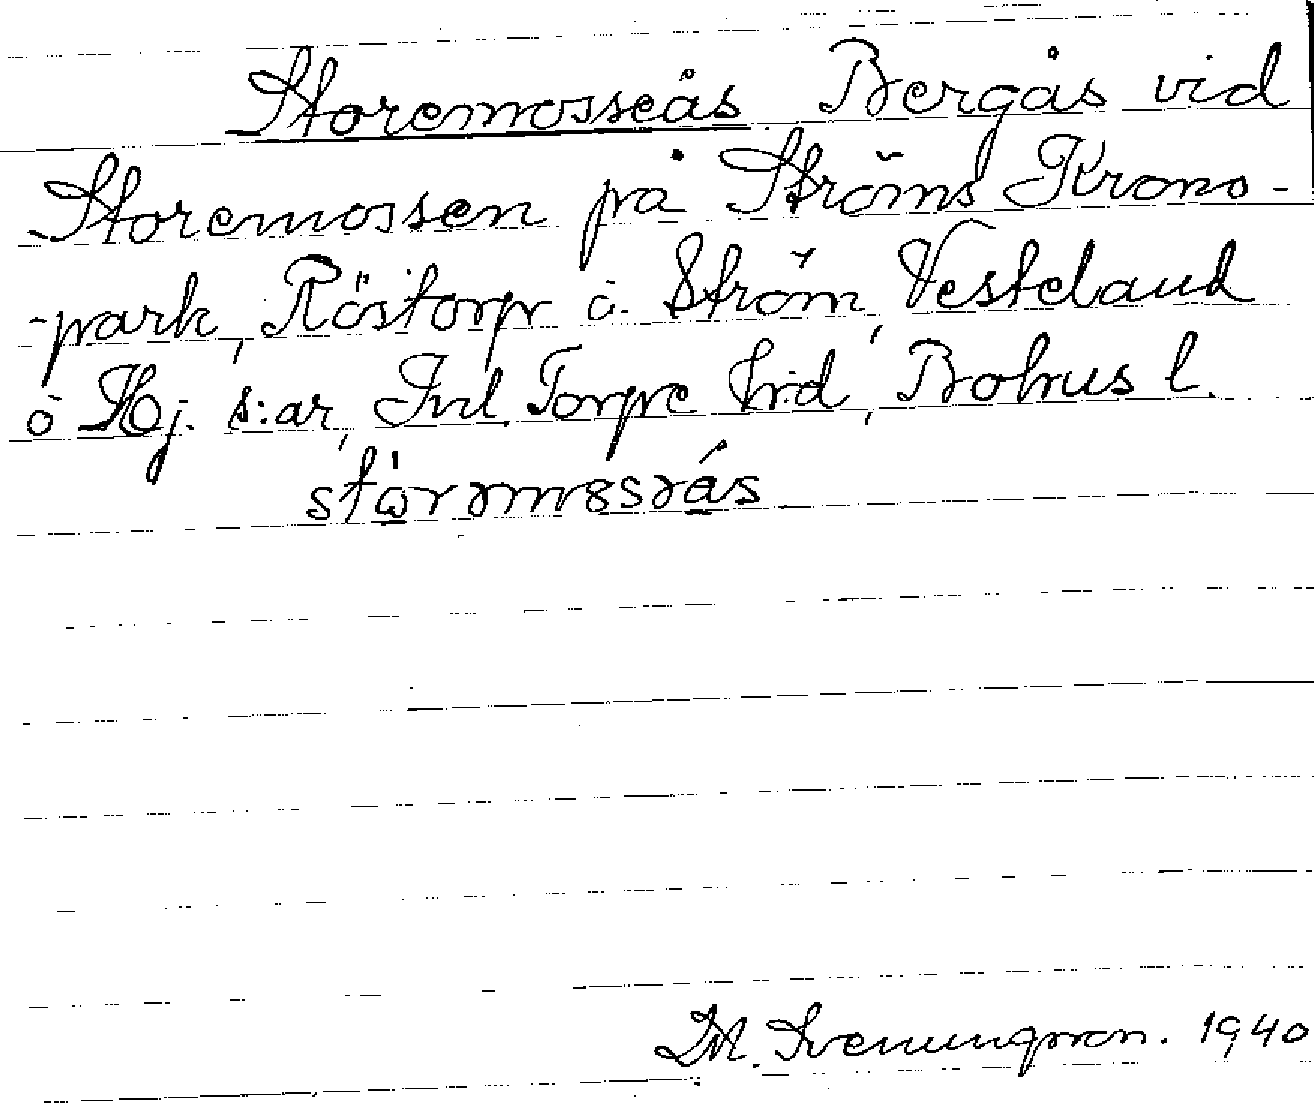 Storemosseås Bergås vid
Storemossen på Ströms Krono-
-park, Röstorp o. Ström, Västerland
o Hj. s:ar, Inl. Torpe hrd, Bohus l.
M. Svenungsson. 1940